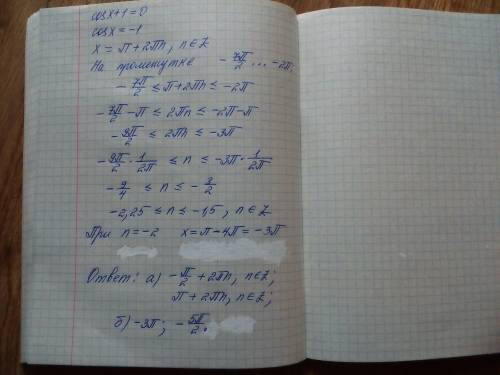 cosx+1=0
cosx=-1
x = π+2πn, n∈Z
На промежутке -7π/2 ... -2π.
-7π/2 ≤ π+2πn ≤ -2π
-7π/2-π ≤ 2πn ≤ -2π-π
-9π/2 ≤ 2πn ≤ -3π
-9π/2 · 1/2π ≤ n ≤ -3π · 1/2π
-9/4 ≤ n ≤ -3/2
-2,25 ≤ n ≤ -1,5, n∈Z
При n=-2 x=π-4π=-3π
Ответ: а) -π/2+2πn, n∈Z;
π+2πn, n∈Z;
б) -3π; -5π/2.